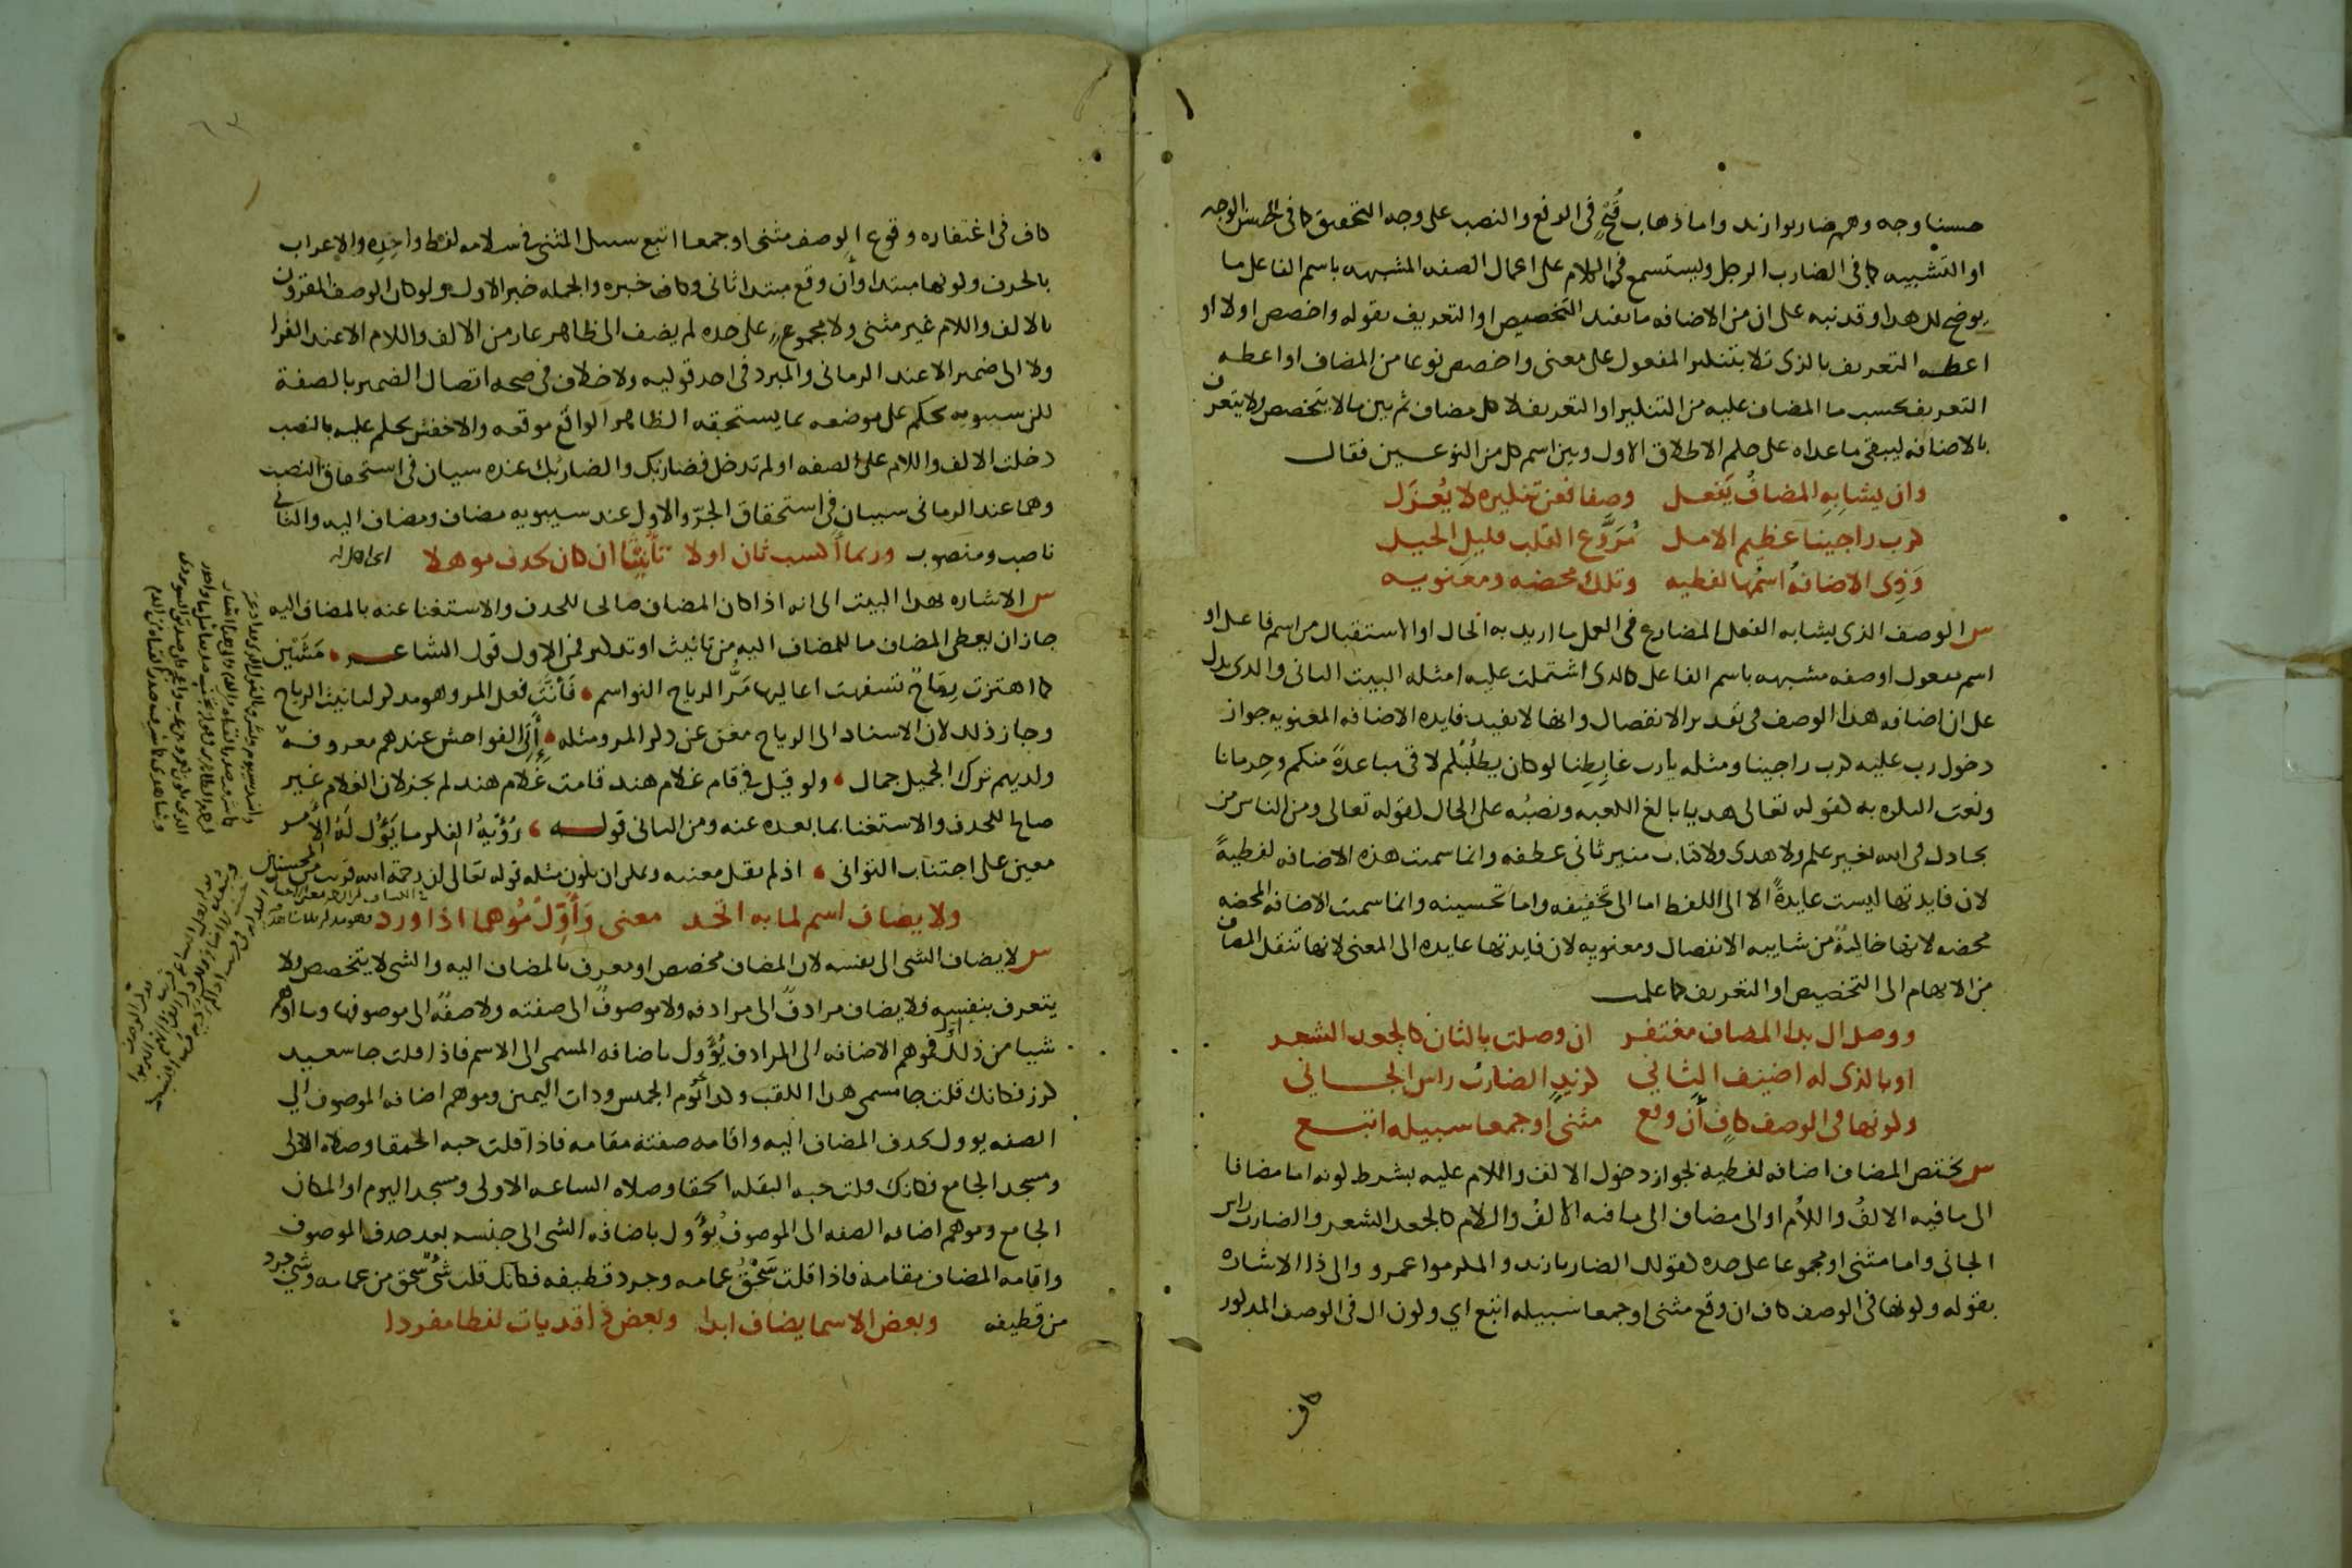 حسنا وجه وهم ضاربوا زيد واما ذهاب قبح في الرفع والنصب على وجه التحقيق كما في الحسن الوجه
او التشبيه كما في الضارب الرجل وليستسمع في الكلام على اعمال الصفه المشبهه باسم الفاعل ما
يوضح لك هدا وقد نبه على ان من الاضافه ما يفيد التخصيص او التعريف بقوله واخصص اولا او
اعطه التعريف بالذى تلا بتنكير المفعول على معنى واخصص نوعا من المضاف او اعطه
التعريف بحسب ما المضاف عليه من التنكير او التعريف لا كل مضاف ثم بين ما لا يتخصص ولا يتعرف
بالاضافه ليبقى ما عداه على حكم الاطلاق الاول وبين اسم كل من النوعين فقال
وان يشابِهِ المضافُ يَفعل وصفا فعن تنكيره لا يُعزَل
كرب راجينا عظيم الامل مُرَوَّع القلب قليل الحيل
وَذِى الاضافةُ اسمُها لفظيه وتلك محضه ومعنويه
س الوصف الذى يشابه الفعل المضارع في العمل ما اريد به الحال او الاستقبال من اسم فاعل او
اسم مفعول او صفه مشبهه باسم الفاعل كالدى اشتملت عليه امثله البيت الثانى والدى يدل
على ان اضافه هدا الوصف في تقدير الانفصال وانها لا تفيد فايده الاضافه المعنويه جواز
دخول رب عليه كرب راجينا ومثله يارب غابِطِنا لو كان يطلُبُكم لاقى مباعدةً منكم وحِرمانا
ونعت النكره به كقوله تعالى هديا بالغ الكعبه ونصبُه على الحال كقوله تعالى ومن الناس من
يجادل في الله بغير علم ولا هدى ولا كتاب منير ثانى عطفه وانما سميت هذه الاضافه لفظيةً
لان فايدتها ليست عايدةً الا الى اللفظ اما الى تخفيفه واما تحسينه وانما سميت الاضافه المحضه
محضه لانها خالصةً من شايبه الانفصال ومعنويه لان فايدتها عايده الى المعنى لانها تنقل المضاف
من الابهام الى التخصيص او التعريف كما علمت
ووصل ال بدا المضاف مغتفر ان وصلت بالثان كالجعد الشعر
او بالذى له اضيف الثاني كزيدٍ الضاربُ راس الجاني
وكونها في الوصف كافٍ أن وقع مثنى او جمعا سبيله اتبع
س يختص المضاف اضافه لفظيه بجواز دخول الالف واللام عليه بشرط كونه اما مضافا
الى ما فيه الالفُ واللامُ او الى مضاف الى ما فيه الالفُ واللام كالجعد الشعر والضارب راس
الجانى واما مثنى او مجموعا على حده كقولك الضاربا زيد والمكرموا عمرو والى ذا الاشاره
بقوله وكونها في الوصف كاف ان وقع مثنى او جمعا سبيله اتبع اي وكون ال في الوصف المدكور
كاف
كاف في اغتفاره وقوع الوصف مثنى او جمعا اتبع سبيل المثنى في سلامه لفظ واحِدِه والاعراب
بالحرف وكونها مبتدا وأن وقع مبتدا ثانى وكاف خبره والجمله خبر الاول ولو كان الوصف المقرون
بالالف واللام غير مثنى ولا مجموعٍ على حده لم يضف الى ظاهر عار من الالف واللام الا عند الفرا
ولا الى ضمير الا عند الرمانى والمبرد في احد قوليه ولا خلاف في صحه اتصال الضمير بالصفة
لكن سيبويه يحكم على موضعه بما يستحقه الظاهر الواقع موقعه والاخفش يحكم عليه بالنصب
دخلت الالف واللام على الصفه او لم تدخل فضاربك والضاربُك عنده سيان في استحقاق النصب
وهما عند الرمانى سيبان في استحقاق الجرّ والاول عند سيبويه مضاف ومضاف اليه والثانى
ناصب ومنصوب وربما أكسب ثان اولا تأنيثًا ان كان لحدف موهلا
س الاشاره بهدا البيت الى انه اذا كان المضاف صالحا للحدف والاستغنا عنه بالمضاف اليه
جاز ان يعطى المضاف ما للمضاف اليه من تانيث او تدكير فمن الاول قول الشاعر مَشَيْن
كما اهتزت رِمَاحٌ تسفهت اعاليها مَرُّ الرياح النواسم فَأنَّثَ فعل المر وهو مدكر لتانيث الرياح
وجاز ذلك لان الاسناد الى الرياح مغن عن دكر المر ومثله إِتَى الفواحش عندهم معروفه
ولديهم ترك الجميل جمال ولو قيل في قام غلام هند قامت غلام هند لم يجز لان الغلام غير
صالح للحدف والاستغنا بما بعده عنه ومن الثانى قوله رُؤْيَةُ الفكر ما يَؤُل لَهُ الأمر
معين على اجتناب التوانى اذ لم يقل معينه ويمكن ان يكون مثله قوله تعالى ان رحمة الله قريب من المحسنين
ولا يضاف اسم لما به اتحد معنى وَأَوِّلْ مُوهما اذا ورد
س لا يضاف الشى الى نفسه لان المضاف مخصص او معرف بالمضاف اليه والشى لا يتخصص ولا
يتعرف بنفسه فلا يضاف مرادفٌ الى مرادفه ولا موصوفٌ الى صفته ولا صفةٌ الى موصوفها وما اوهم
شيا من ذلك أُوِّل فموهم الاضافه الى المرادف يُؤَوَّل باضافه المسمى الى الاسم فاذا قلت جا سعيد
كرز فكانك قلت جا مسمى هدا اللقب وكدا يَوم الخميس ودات اليمين وموهم اضافه الموصوف الى
الصفه يوول بحدف المضاف اليه واقامه صفته مقامه فاذا قلت حبه الحمقا وصلاه الاولى
ومسجد الجامع فكانك قلت حبه البقله الحمقا وصلاه الساعه الاولى ومسجد اليوم او المكان
الجامع وموهم اضافه الصفه الى الموصوف يُؤَول باضافه الشى الى جنسه بعد حدف الموصوف
واقامه المضاف مقامه فاذا قلت سَحْقُ عمامه وجرد قطيفه فكانك قلت شَىٌ سحق من عمامه وشى جرد
من قطيفه وبعض الاسما يضاف ابدا وبعض ذا قد يات لفظا مفردا